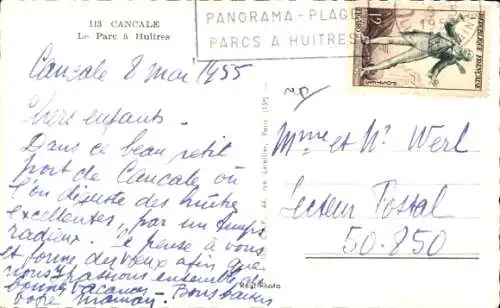 113 CANCALE
Le Parc à Huîtres
PANORAMA - PLAGE
PARCS A HUITRES
Cancale 8 mai 1955
Chers enfants -
Dans ce beau petit
port de Cancale où
l'on déguste des huîtres
excellentes, par un temps
radieux. Je pense à vous
et forme des vœux afin que
nous passions ensemble de
bonnes vacances - Bons baisers
votre maman
Mme et Mr Werl
Secteur Postal
50.850
Real Photo